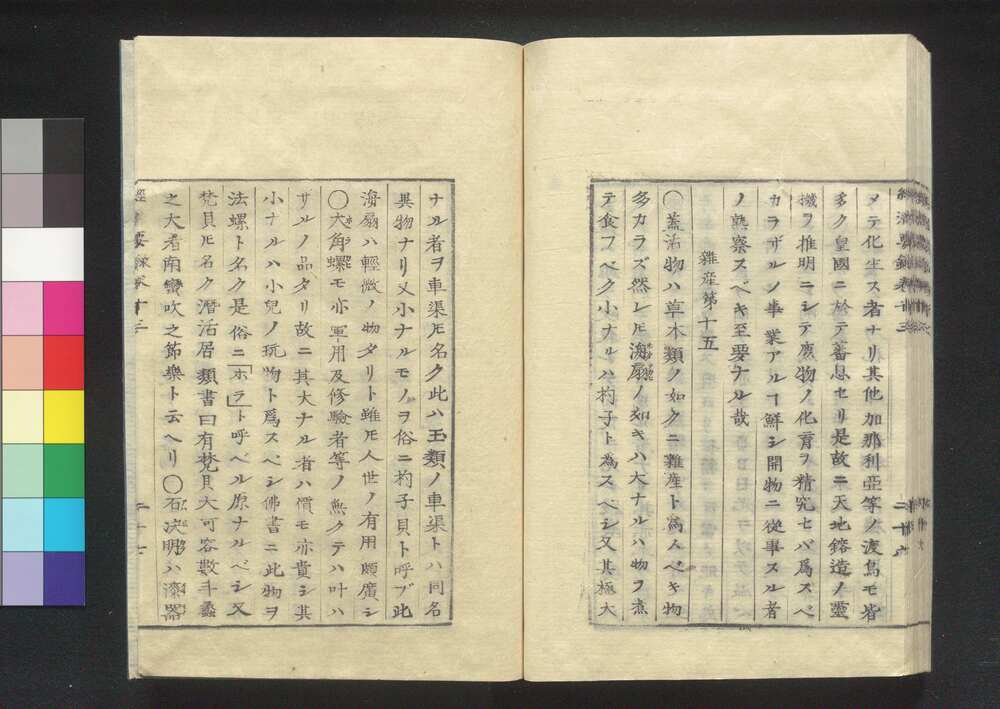 メテ化生ス者ナリ其他加那利亞等ノ渡鳥モ皆
多ク皇國ニ於テ蕃息セリ是故ニ天地鎔造ノ靈
機ヲ推明ニシテ廣物ノ化育ヲ精究セバ爲スベ
カラザルノ事業アルヿ鮮シ開物ニ從事スル者
ノ熟察スベキ至要ナル哉
雜産第十五
〇蓋活物ハ草木類ノ如クニ雜産ト為スベキ物
多カラズ然レ𪜈海扇ノ如キハ大ナルハ物ヲ煮
テ食フベク小ナルハ杓子ト為スベシ又其極大
ナル者ヲ車渠𪜈名ク此ハ玉類ノ車渠トハ同名
異物ナリ又小ナルモノヲ俗ニ杓子貝ト呼ブ此
海扇ハ輕微ノ物タリト雖𪜈人世ノ有用頗廣シ
〇大角螺モ亦軍用及修驗者等ノ無クテハ叶ハ
ザルノ品タリ故ニ其大ナル者ハ價モ亦貴シ其
小ナルハ小兒ノ玩物ト爲スベシ佛書ニ此物ヲ
法螺ト名ク是俗ニ「ホラ」ト呼ベル原ナルベシ又
梵貝𪜈名ク潛活居類書曰有梵貝大可容數斗蠡
之大者南蠻吹之節樂ト云ヘリ〇石决明ハ漆器